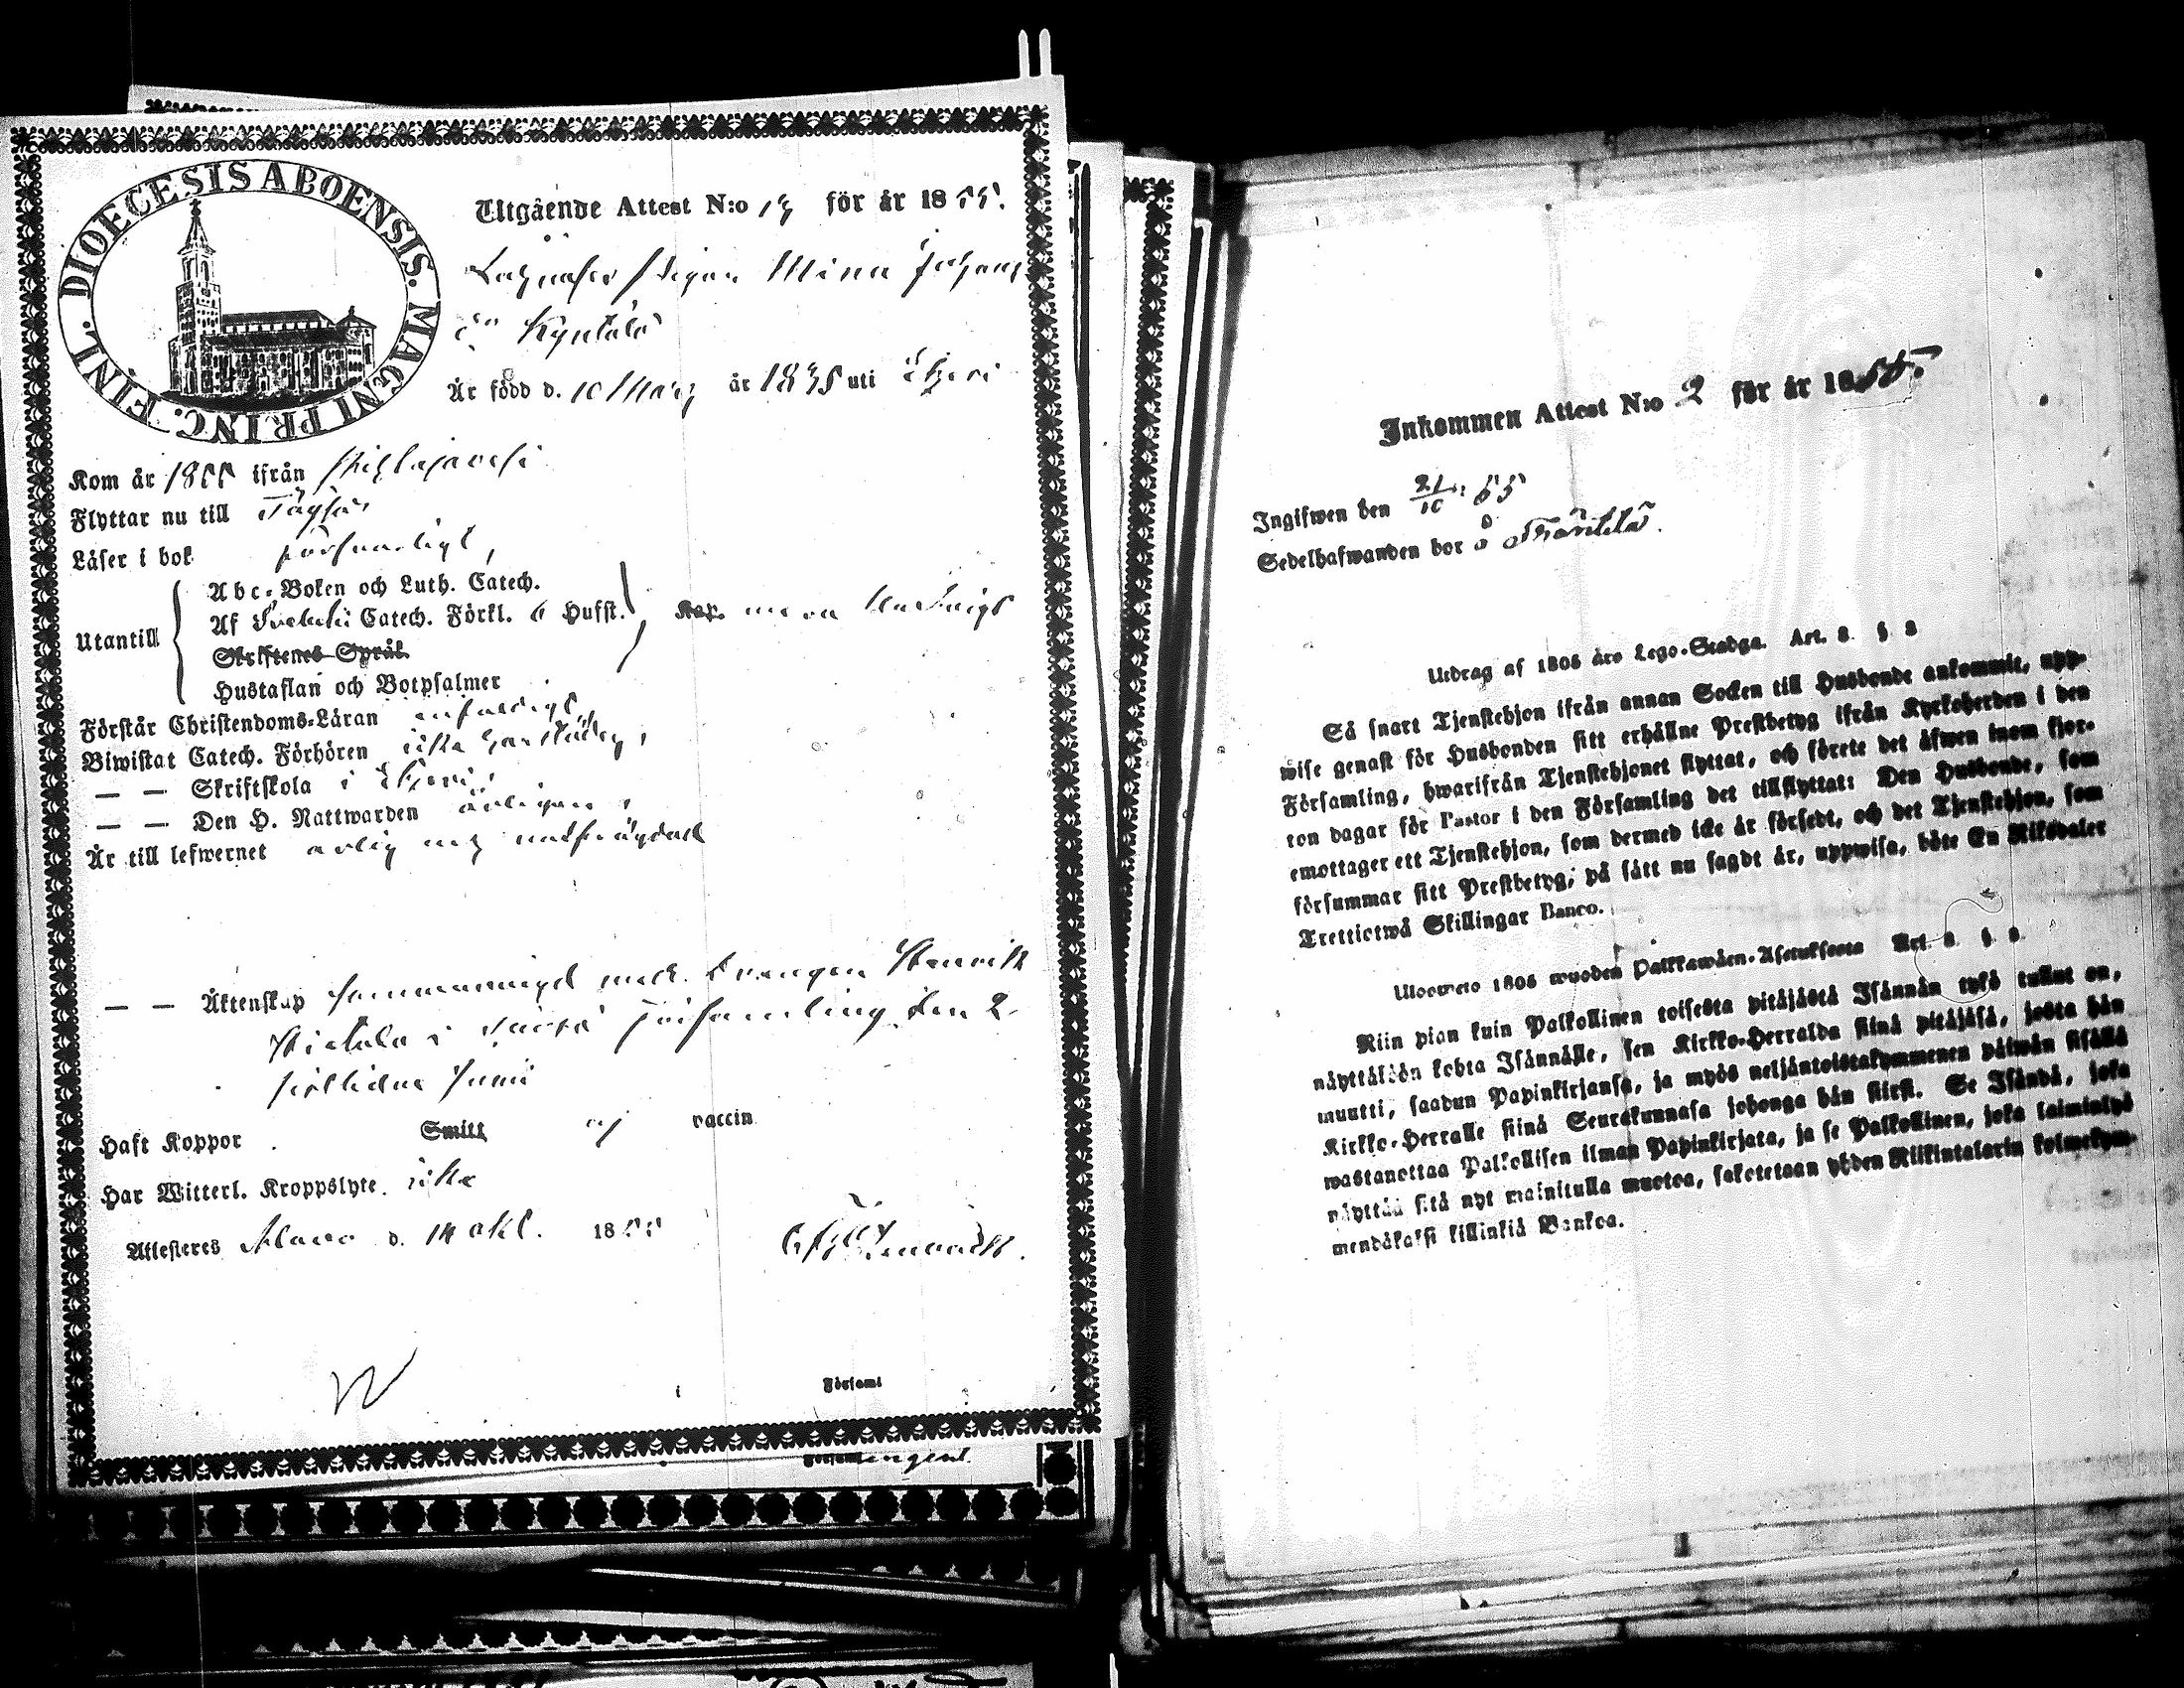 DIOECESIS ABOENSIS. MAGNI PRINC. FINL.
Utgående Attest N:o 13 för år 1855.
Mina Johans
Är född d. 10 Mars år 1835 uti Etseri
Kom år 1855 ifrån Pihlajavesi
Flyttar nu till Töysä
Läser i bok försvarligt,
Utantill
Abc-Boken och Luth. Catech.
Af Svebelii Catech. Förkl. 6 Hufst.
Skriftenes Språk
Hustaflan och Botpsalmer
Förstår Christendoms-Läran enfaldigt,
Biwistat Catech. Förhören icke härstädes,
— — Skriftskola i Etseri,
— — Den H. Nattwarden årligen,
Är till lefwernet ärlig
— — Äktenskap sammanvigd med Drängen Henrik
i församling den 2
sistlidne Juni
Haft Koppor Smitt ej vaccin
Har Witterl. Kroppslyte icke
Attesteres Alavo d. 14 Okt. 1855
Församl
Inkommen Attest N:o 2 för år 1855.
Ingifwen den 21/10 55
Sedelhafwanden bor å Träntelä.
Utdrag af 1805 års Lego-Stadga. Art. 8. § 8
Så snart Tjenstehjon ifrån annan Socken till Husbonde ankommit, upp-
wise genast för Husbonden sitt erhållne Prestbetyg ifrån Kyrkoherden i den
Församling, hwarifrån Tjenstehjonet flyttat, och förete det äfwen inom fjor-
ton dagar för Pastor i den Församling det tillflyttat: Den Husbonde, som
emottager ett Tjenstehjon, som dermed icke är försedt, och det Tjenstehjon, som
försummar sitt Prestbetyg, på sätt nu sagdt är, uppwisa, böte En Riksdaler
Trettiotwå Skillingar Banco.
Ulosweto 1805 wuoden Palkkawäen-Asetuksesta Art. 8. § 8
Niin pian kuin Palkollinen toisesta pitäjästä Isännän tykö tullut on,
näyttäköön kohta Isännälle, sen Kirkko-Herralda siinä pitäjäsä, josta hän
muutti, saadun Papinkirjansa, ja myös neljäntoistakymmenen päiwän sisällä
Kirkko-Herralle siinä Seurakunnasa johonga hän siirsi. Se Isändä, joka
wastanottaa Palkollisen ilman Papinkirjata, ja se Palkollinen, joka laiminlyö
näyttää sitä nyt mainitulla muotoa, saketetaan yhden Riikintalarin kolmekym-
mendäkaksi killinkiä Bankoa.